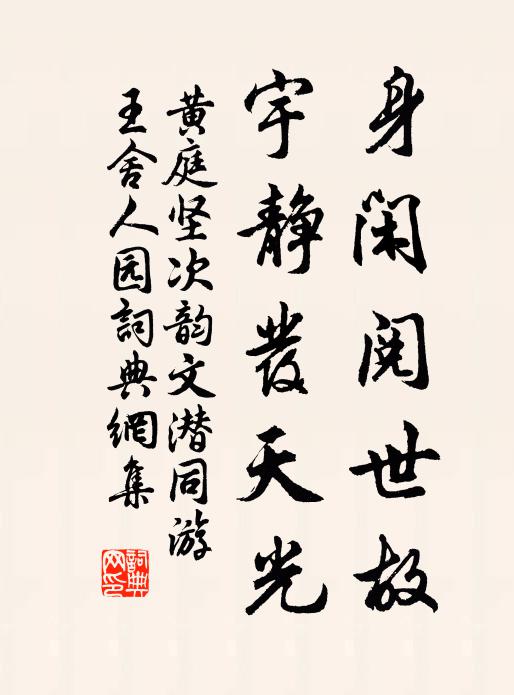 身閑閱世故
宇靜發天光
黄庭坚次韵文潜同游
王舍人园詞典網集
詞典网印